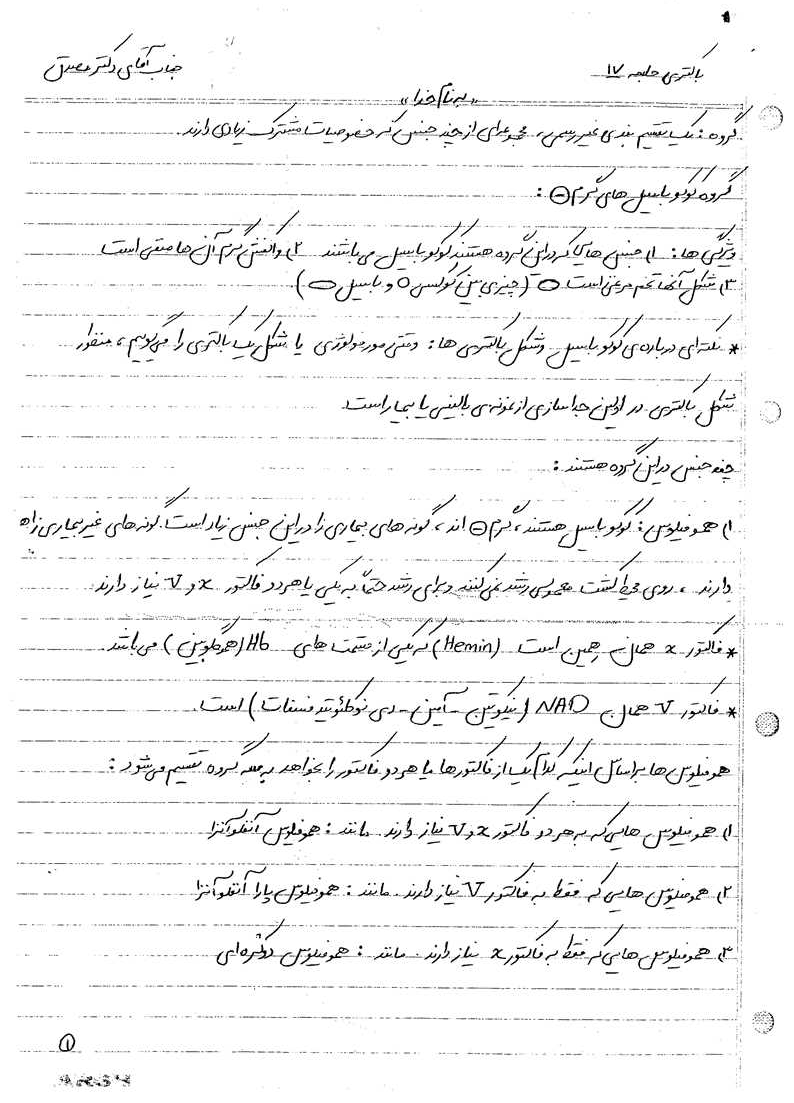 1
باکتری جلسه ۱۷
جناب آقای دکتر مصدق
«به نام خدا»
گروه: یک تقسیم بندی غیر رسمی، مجموعه‌ای از چند جنس که خصوصیات مشترک زیادی دارند.
گروه کوکوباسیل های گرم ⊖ :
ویژگی ها: ۱) جنس هایی که در این گروه هستند کوکوباسیل می باشند ۲) واکنش گرم آن ها منفی است
۳) شکل آنها تخم مرغی است (چیزی بین کوکسی و باسیل).
* نکته‌ای درباره‌ی کوکوباسیل و شکل باکتری ها: وقتی مورفولوژی یا شکل یک باکتری را می‌گوییم، منظور
شکل باکتری در اولین جداسازی از نمونه‌ی بالینی یا بیمار است.
چند جنس در این گروه هستند :
۱) هموفیلوس: کوکوباسیل هستند، گرم ⊖ اند، گونه های بیماری زا در این جنس زیاد است. گونه های غیر بیماری زا هم
دارند، روی محیط کشت معمولی رشد نمی کنند و برای رشد حتماً به یکی یا هر دو فاکتور x و V نیاز دارند
* فاکتور x همان همین است (Hemin) که یکی از قسمت های Hb (هموگلوبین) می باشد
* فاکتور V همان NAD (نیکوتین - آمین - دی نوکلئوتید فسفات) است.
هموفیلوس ها براساس اینکه کدام یک از فاکتورها یا هر دو فاکتور را بخواهد به سه گروه تقسیم می شود :
۱) هموفیلوس هایی که به هر دو فاکتور x و V نیاز دارند. مانند : هموفیلوس آنفلوآنزا
۲) هموفیلوس هایی که فقط به فاکتور V نیاز دارند. مانند : هموفیلوس پارا آنفلوآنزا
۳) هموفیلوس هایی که فقط به فاکتور x نیاز دارند. مانند : هموفیلوس دوکره‌ای
①